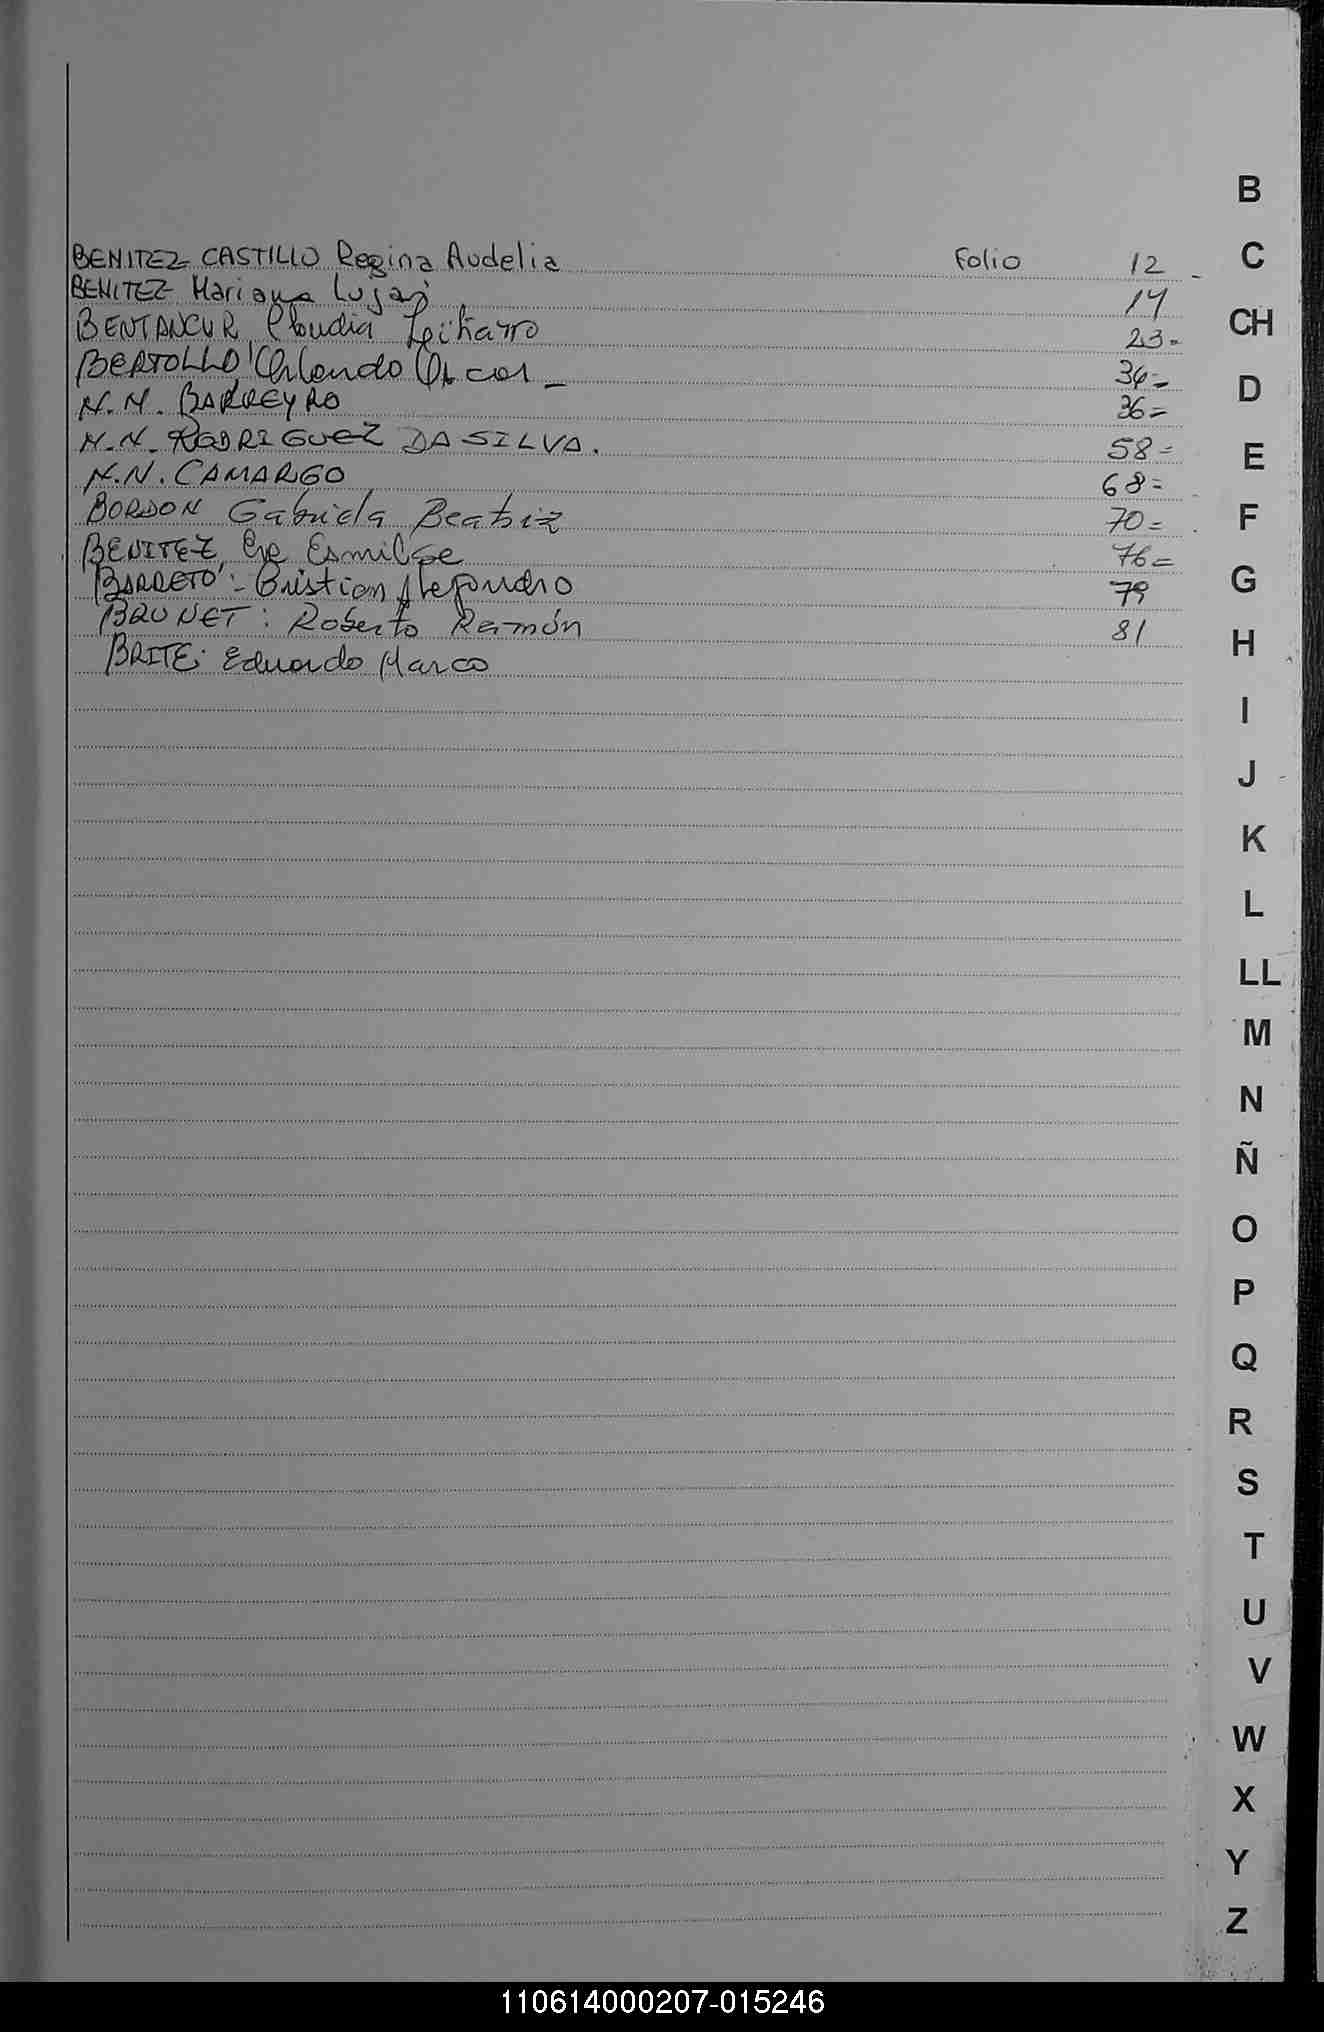 BENITEZ CASTILLO Regina Audelia Folio 12
BENITEZ Mariana Lujan 14
BENTANCUR, Claudia 23=
BERTOLLO, Orlando Oscar 34=
N.N. BARREYRO 36=
N.N. RODRIGUEZ DA SILVA. 58=
N.N. CAMARGO 68=
BORDON Gabriela Beatriz 70=
BENITEZ, Esmilse 76=
BARRETO: Cristian Alejandro 79
BRUNET: Roberto Ramón 81
BRITE: Eduardo Marco
B
C
CH
D
E
F
G
H
I
J
K
L
LL
M
N
Ñ
O
P
Q
R
S
T
U
V
W
X
Y
Z
110614000207-015246